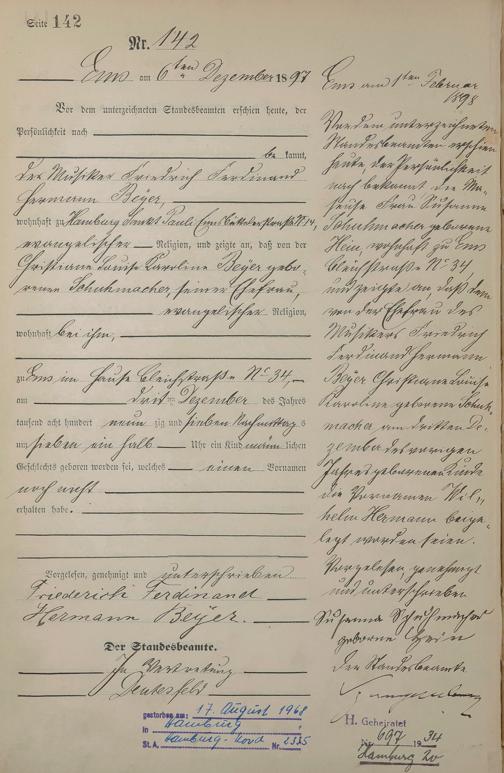 Seite 142
Nr. 142
Ems am 6ten Dezember 1897
Vor dem unterzeichneten Standesbeamten erschien heute, der
Persönlichkeit nach
be kannt,
der Musiker Friedrich Ferdinand
Hermann Beyer,
wohnhaft zu Hamburg Sankt Pauli Eimsbüttelerstraße N. 14,
evangelischer Religion, und zeigte an, daß von der
Christiane Louise Karoline Beyer gebo-
renen Schuhmacher, seiner Ehefrau,
evangelischer Religion,
wohnhaft bei ihm,
zu Ems im Hause Bleichstraße No 34,
am dritten Dezember des Jahres
tausend acht hundert neunzig und sieben Nachmittags
um sieben ein halb Uhr ein Kind männlichen
Geschlechts geboren worden sei, welches einen Vornamen
noch nicht
erhalten habe.
Vorgelesen, genehmigt und unterschrieben
Friederich Ferdinand
Hermann Beyer.
Der Standesbeamte.
In Vertretung
gestorben am: 17. August 1968
in Hamburg
St.A. Hamburg-Nord Nr. 2335
Ems am 1ten Februar
1898
Vor dem unterzeichneten
Standesbeamten erschien
heute der Persönlichkeit
nach bekannt die
Frau Susanne
Schuhmacher geborene
Hein, wohnhaft zu Ems
Bleichstraße No 34,
und zeigte an, daß dem
von der Ehefrau des
Musikers Friedrich
Ferdinand Hermann
Beyer Christiane Louise
Karoline geborene Schuh-
macher am dritten De-
zember des vorigen
Jahres geborenen Kinde
die Vornamen Wil-
helm Hermann beige-
legt worden seien.
Vorgelesen, genehmigt
und unterschrieben
Susanna Schuhmacher
geborne Hein
Der Standesbeamte
H. Geheiratet
Nr. 697 1934
Hamburg 20